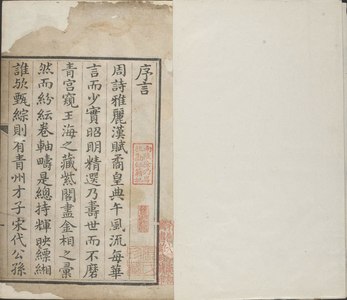 序言
周詩雅麗漢賦矞皇典午風流每華
言而少實昭明精選乃壽世而不磨
青宮窺王海之藏紫閣盡金相之彙
然而紛紜卷軸疇是總持輝映縹緗
誰欤甄綜則有青州才子宋代公孫